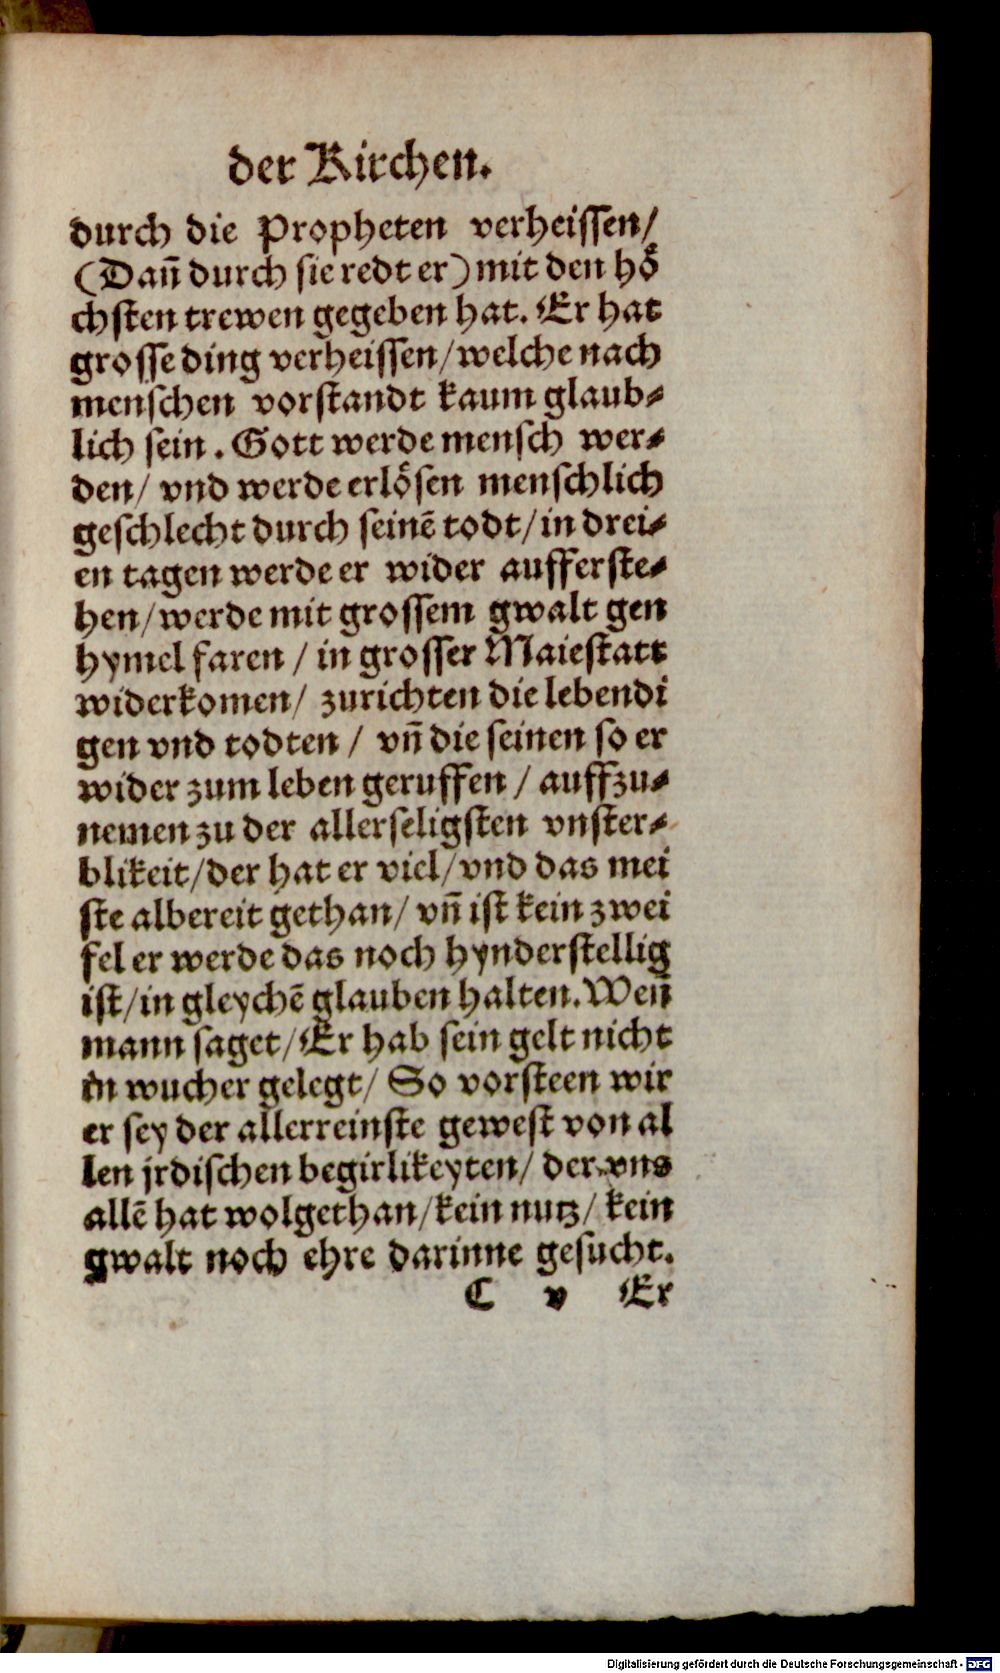 der Kirchen.
durch die Propheten verheissen/
(Dañ durch sie redt er) mit den hoͤ
chsten trewen gegeben hat. Er hat
grosse ding verheissen/ welche nach
menschen vorstandt kaum glaub⸗
lich sein. Gott werde mensch wer⸗
den/ vnd werde erloͤsen menschlich
geschlecht durch seinē todt/ in drei⸗
en tagen werde er wider aufferste⸗
hen/ werde mit grossem gwalt gen
hymel faren / in grosser Maiestatt
widerkomen/ zurichten die lebendi
gen vnd todten / vñ die seinen so er
wider zum leben geruffen / auffzu⸗
nemen zu der allerseligsten vnster⸗
blikeit/ der hat er viel/ vnd das mei
ste albereit gethan/ vñ ist kein zwei
fel er werde das noch hynderstellig
ist/ in gleychē glauben halten. Weñ
mann saget/ Er hab sein gelt nicht
in wucher gelegt/ So vorsteen wir
er sey der allerreinste gewest von al
len jrdischen begirlikeyten/ der vns
allē hat wolgethan/ kein nutz/ kein
gwalt noch ehre darinne gesucht.
C v Er
Digitalisierung gefördert durch die Deutsche Forschungsgemeinschaft - DFG